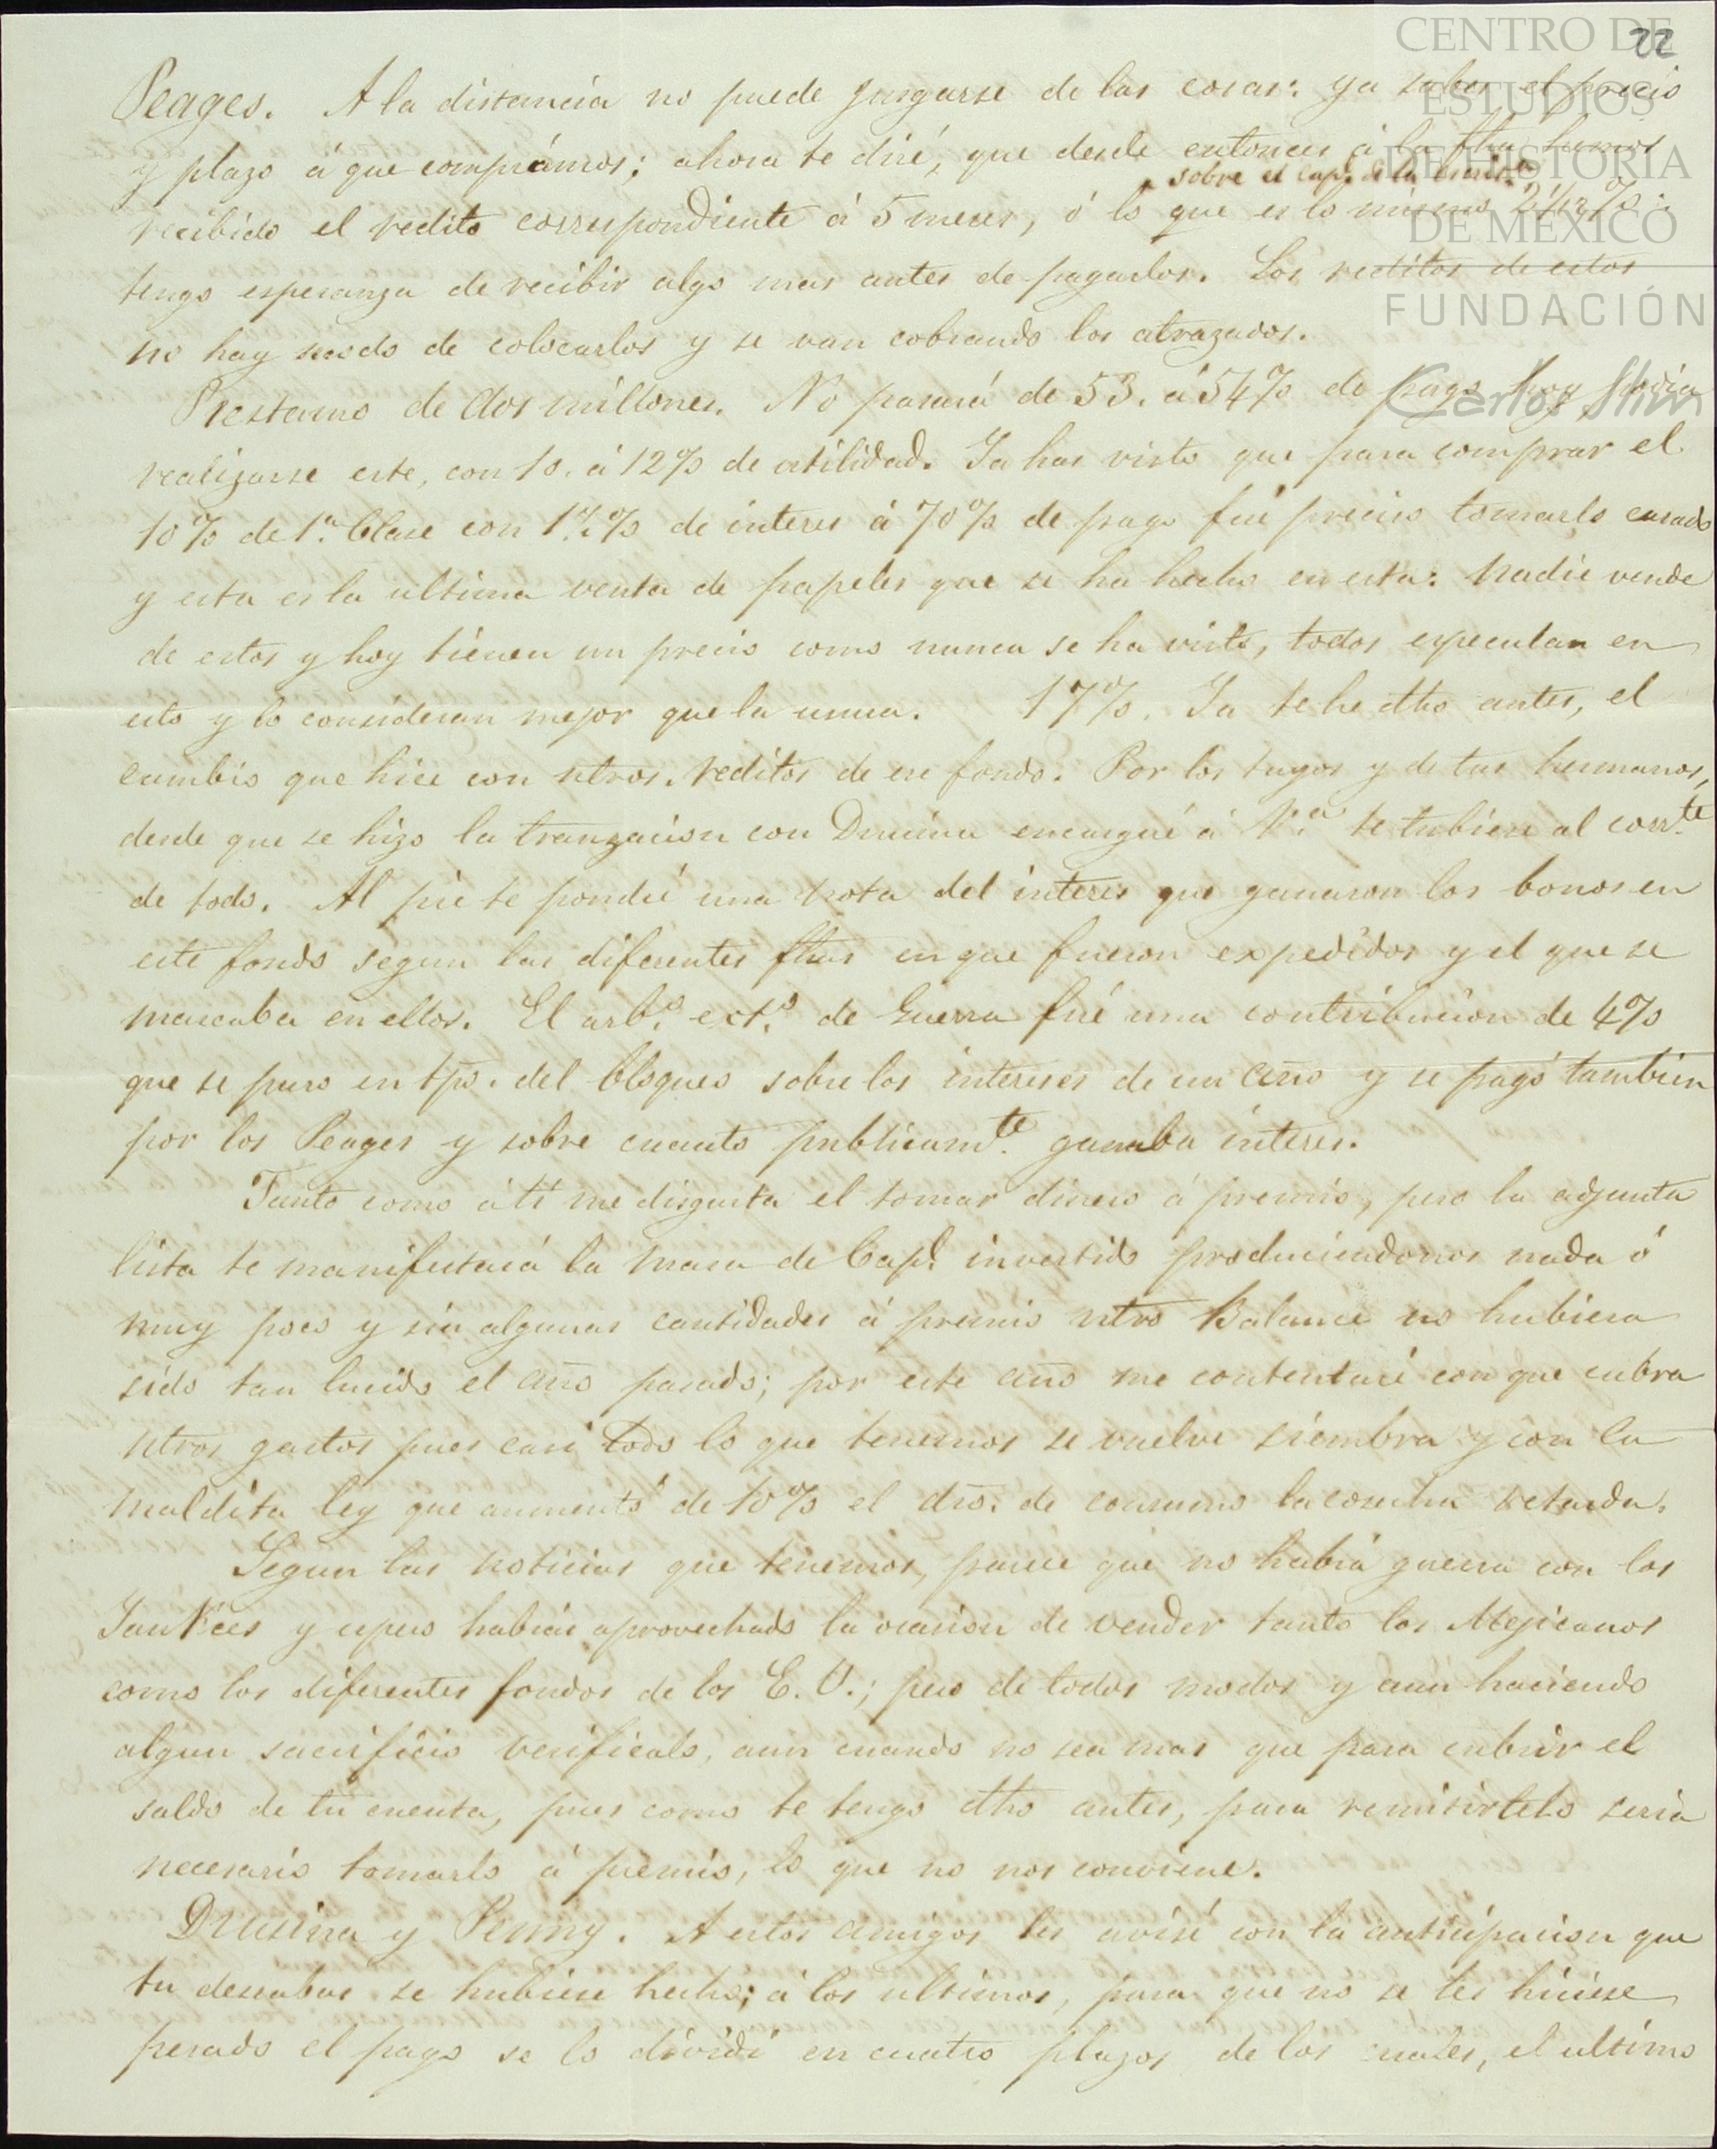 22
CENTRO DE
ESTUDIOS
DE HISTORIA
DE MEXICO
FUNDACIÓN
Carlos Slim
Peages. A la distancia no puede jusgarse de las cosas: ya sabes el precio
y plazo á que comprámos; ahora te diré, que desde entonces á la fha hemos
sobre el cap.l de la
recibido el redito correspondiente á 5 meses, ó lo que es lo mismo 2 1/2 %:
tengo esperanza de recibir algo mas antes de pagarlos. Los reditos de estos
no hay modo de colocarlos y se van cobrando los atrazados.
Prestamo de dos millones. No pasará de 53. á 54% de pago hoy podria
realizarse este, con 10. á 12% de utilidad. Ya has visto que para comprar el
10% de 1.a Clase con 1 % de interes á 70% de pago fué preciso tomarlo casado
y esta es la ultima venta de papeles que se ha hecho en esta: Nadie vende
de estos y hoy tienen un precio como nunca se ha visto, todos especulan en
esto y lo consideran mejor que la usura. 17%. Ya te he dho antes, el
cambio que hice con ntros. reditos de ese fondo. Por los tuyos y de tus hermanos,
desde que se hizo la tranzacion con Drusina encargué á te tubiese al corr.te
de todo. Al pie te pondré una nota del interes que ganaron los bonos en
este fondo segun las diferentes fhas en que fueron expedidos y el que se
marcaba en ellos. El arb.o ext.o de Guerra fué una contribucion de 4%
que se puso en tpo. del bloqueo sobre los intereses de un año y se pagó tambien
por los Peages y sobre cuanto publicam.te ganaba interes.
Tanto como á tí me disgusta el tomar dinero á premio, pero la adjunta
lista te manifestará la masa de Cap.l invertido produciendonos nada ó
muy poco y sin algunas cantidades á premio ntro Balance no hubiera
sido tan lucido el año pasado; por este año me contentaré con que cubra
ntros gastos pues casi todo lo que tenemos se vuelve siembra y con la
maldita ley que aumentó de 10% el dro. de consumo la cosecha retarda.
Segun las noticias que tenemos, parece que no habrá guerra con los
Yankees y espero habrás aprovechado la ocasion de vender tanto los Mejicanos
como los diferentes fondos de los E. U.; pero de todos modos y aun haciendo
algun sacrificio verificalo, aun cuando no sea mas que para cubrir el
saldo de tu cuenta, pues como te tengo dho antes, para remitirtelo seria
necesario tomarlo á premio, lo que no nos conviene.
Drusina y Penny. A estos amigos les avisé con la anticipacion que
tu deseabas se hubiese hecho; á los ultimos, para que no se les hiciese
pesado el pago se lo dividí en cuatro plazos de los cuales, el ultimo